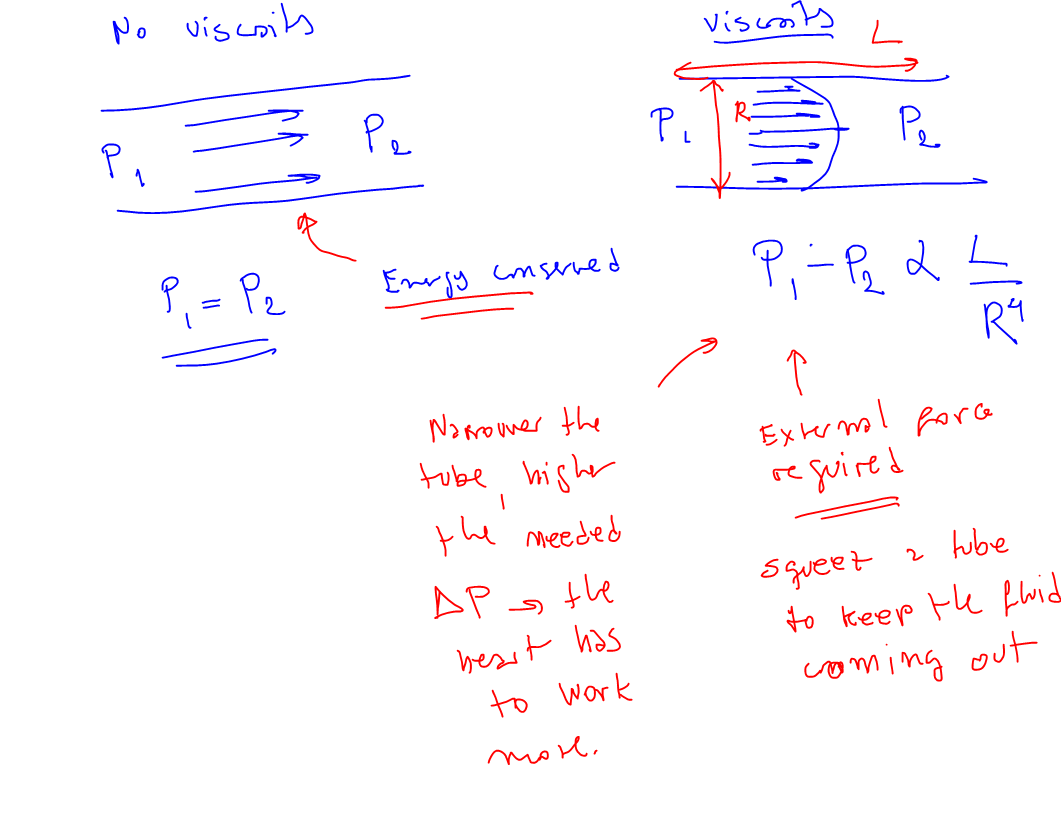 No viscosity
P₁ P₂
P₁ = P₂
Energy conserved
viscosity
L
P₁ R P₂
P₁ - P₂ α L / R⁴
Narrower the
tube, higher
the needed
ΔP → the
heart has
to work
more.
External force
required
squeez a tube
to keep the fluid
comming out